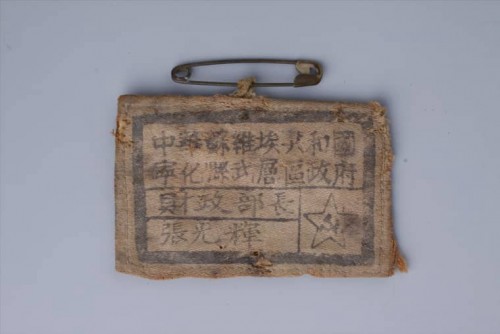 中華蘇維埃共和國
寧化縣武層區政府
財政部長
張光輝